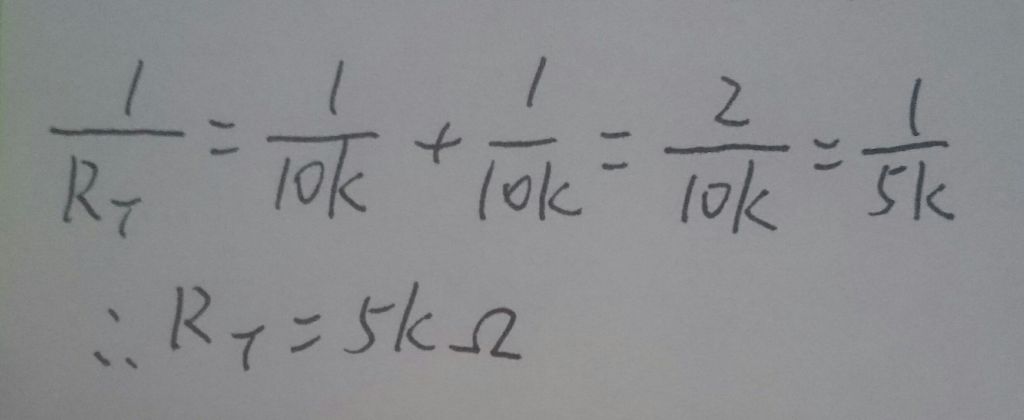 1/R_T = 1/10k + 1/10k = 2/10k = 1/5k
∴ R_T = 5kΩ